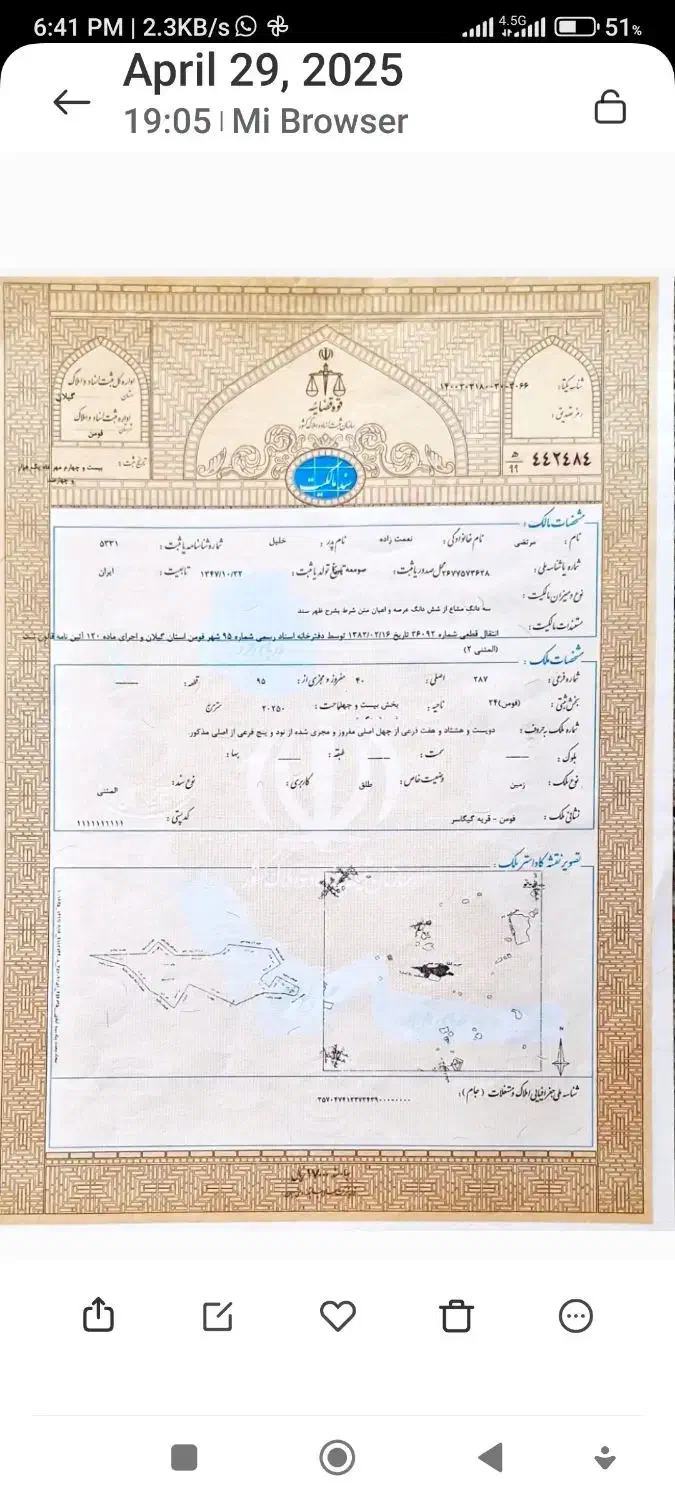 6:41 PM | 2.3KB/s 4.5G 51%
April 29, 2025
19:05 | Mi Browser
اداره کل ثبت اسناد و املاک
استان گیلان
اداره ثبت اسناد و املاک
فومن
قوه قضائیه
سازمان ثبت اسناد و املاک کشور
شناسه یکتا:
رمز تصدیق:
۴۴۲۴۸۴ ه‍ ۹۹
تاریخ ثبت: بیست و چهارم
سند مالکیت
مشخصات مالک:
نام: مرتضی نام خانوادگی: نعمت زاده نام پدر: خلیل شماره شناسنامه یا ثبت: ۵۳۳۱
شماره یا شناسه ملی: ۲۶۷۷۵۷۳۶۳۸ محل صدور یا ثبت: صومعه تاریخ تولد یا ثبت: ۱۳۴۷/۱۰/۲۲ تابعیت: ایران
نوع و میزان مالکیت: سه دانگ مشاع از شش دانگ عرصه و اعیان متن شرط بشرح ظهر سند
مستندات مالکیت: انتقال قطعی شماره ۲۶۰۹۲ تاریخ ۱۳۸۲/۰۲/۱۶ توسط دفترخانه اسناد رسمی شماره ۹۵ شهر فومن استان گیلان و اجرای ماده ۱۲۰ آئین نامه قانون ثبت
(المثنی ۲)
مشخصات ملک:
شماره فرعی: ۲۸۷ اصلی: ۴۰ مفروز و مجزی از: ۹۵ قطعه:
بخش ثبتی: ۲۴(فومن) ناحیه: بخش بیست و چهار مساحت: ۲۰۲۵۰ مترمربع
شماره ملک به حروف: دویست و هشتاد و هفت فرعی از چهل اصلی مفروز و مجزی شده از نود و پنج فرعی از اصلی مذکور
بلوک: سمت: طبقه: بها:
نوع ملک: زمین وضعیت خاص: طلق کاربری: نوع سند: المثنی
نشانی ملک: فومن - قریه گیگاسر کد پستی: ۱۱۱۱۱۱۱۱۱۱
تصویر نقشه کاداستر ملک:
N
شناسه ملی جغرافیایی املاک و مستغلات (جام):